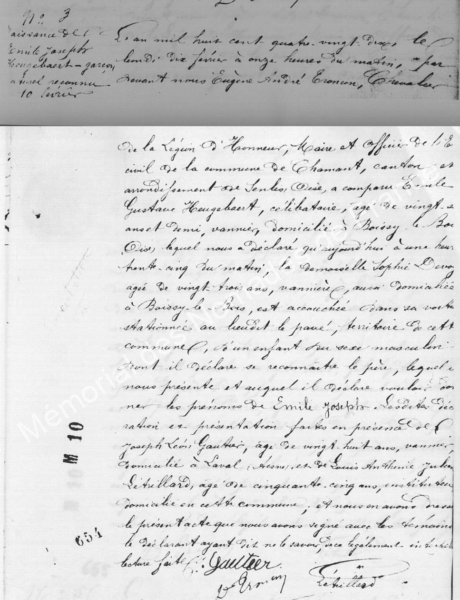 N° 3
Naissance de
Emile Joseph
Heugebaert - garçon
naturel reconnu
10 février
L'an mil huit cent quatre vingt dix, le
lundi dix février à onze heures du matin, par
devant nous Eugène André, Chevalier
de la Légion d'Honneur, Maire et Officier de l'E
civil de la commune de Chamant, canton et
arrondissement de Senlis Oise, a comparu Emile
Gustave Heugebaert, célibataire, âgé de vingt
ans et demi, vannier, domicilié à Boissy le Bois
Oise, lequel nous a déclaré qu'aujourd'hui à une heure
trente cinq du matin, la demoiselle Sophie
agée de vingt trois ans, vannière, aussi domiciliée
à Boissy le Bois, est accouchée dans sa voiture
stationnée au lieudit le pavé, territoire de cette
commune, d'un enfant du sexe masculin
dont il déclare se reconnaître le père, lequel
nous présente et auquel il déclare vouloir don
ner les prénoms de Emile Joseph. Lesdites décla
ration et présentation faites en présence de
Joseph Léon Gautier, âgé de vingt huit ans, vannier,
domicilié à Laval, Aisne et de Louis Anthime Julien
Létillard, âgé de cinquante cinq ans, instituteur
domicilié en cette commune, et nous en avons dressé
le présent acte que nous avons signé avec les témoins
le déclarant ayant dit ne le savoir,
lecture faite. Gautier
Létillard
M 10
654